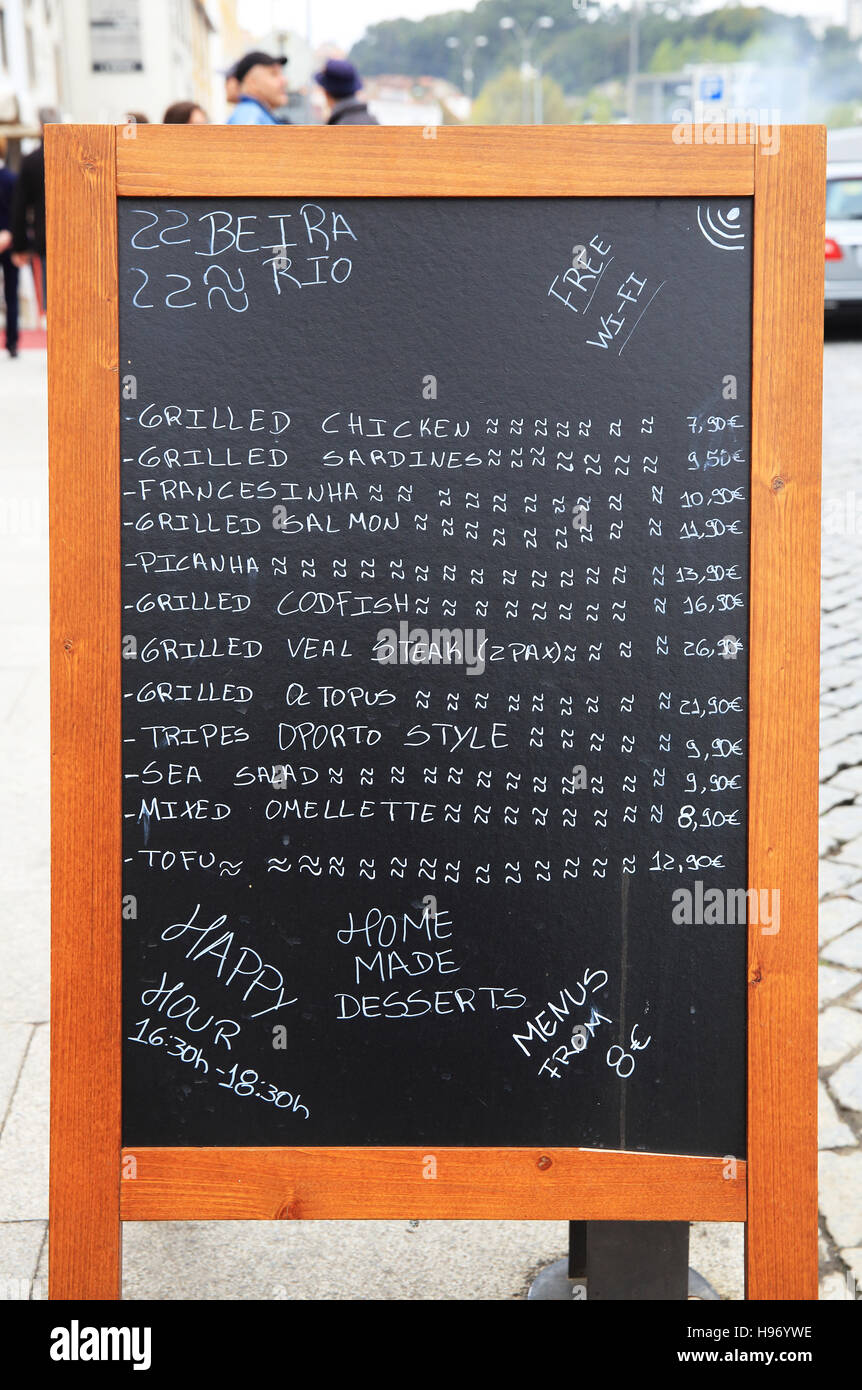 BEIRA
RIO
FREE
WI-FI
-GRILLED CHICKEN ≈ ≈ ≈ ≈ ≈ ≈ ≈ 7,90€
-GRILLED SARDINES ≈ ≈ ≈ ≈ ≈ ≈ ≈ 9,50€
-FRANCESINHA ≈ ≈ ≈ ≈ ≈ ≈ ≈ ≈ ≈ 10,90€
-GRILLED SALMON ≈ ≈ ≈ ≈ ≈ ≈ ≈ ≈ 11,90€
-PICANHA ≈ ≈ ≈ ≈ ≈ ≈ ≈ ≈ ≈ ≈ ≈ ≈ ≈ 13,90€
-GRILLED CODFISH ≈ ≈ ≈ ≈ ≈ ≈ ≈ ≈ 16,90€
-GRILLED VEAL STEAK (2PAX) ≈ ≈ ≈ ≈ 26,90€
-GRILLED OCTOPUS ≈ ≈ ≈ ≈ ≈ ≈ ≈ ≈ ≈ 21,90€
-TRIPES OPORTO STYLE ≈ ≈ ≈ ≈ ≈ 9,90€
-SEA SALAD ≈ ≈ ≈ ≈ ≈ ≈ ≈ ≈ ≈ ≈ ≈ ≈ 9,90€
-MIXED OMELLETTE ≈ ≈ ≈ ≈ ≈ ≈ ≈ ≈ 8,90€
-TOFU ≈ ≈ ≈ ≈ ≈ ≈ ≈ ≈ ≈ ≈ ≈ ≈ ≈ 12,90€
HAPPY
HOUR
16:30h-18:30h
HOME
MADE
DESSERTS
MENUS
FROM 8€
alamy
Image ID: H96YWE
www.alamy.com